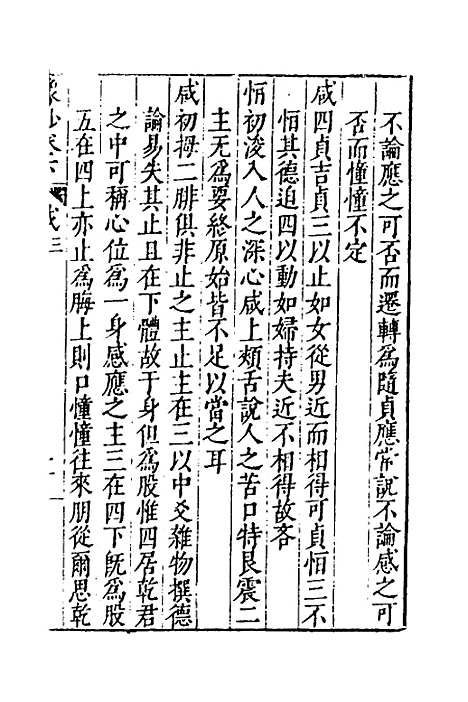 不論應之可否而遷轉爲隨貞應常說不論感之可
否而憧憧不定
咸四貞吉貞三以止如女從男近而相得可貞恒三不
恒其德迫四以動如婦持夫近不相得故吝
恒初浚入人之深心咸上頰舌說人之苦口特艮震二
主无爲要終原始皆不足以當之耳
咸初拇二腓俱非止之主止主在三以中爻雜物撰德
論易失其止且在下體故于身但爲股惟四居乾君
之中可稱心位爲一身感應之主三在四下旣爲股
五在四上亦止爲脢上則口憧憧往來朋從爾思乾
象抄卷下 咸 三